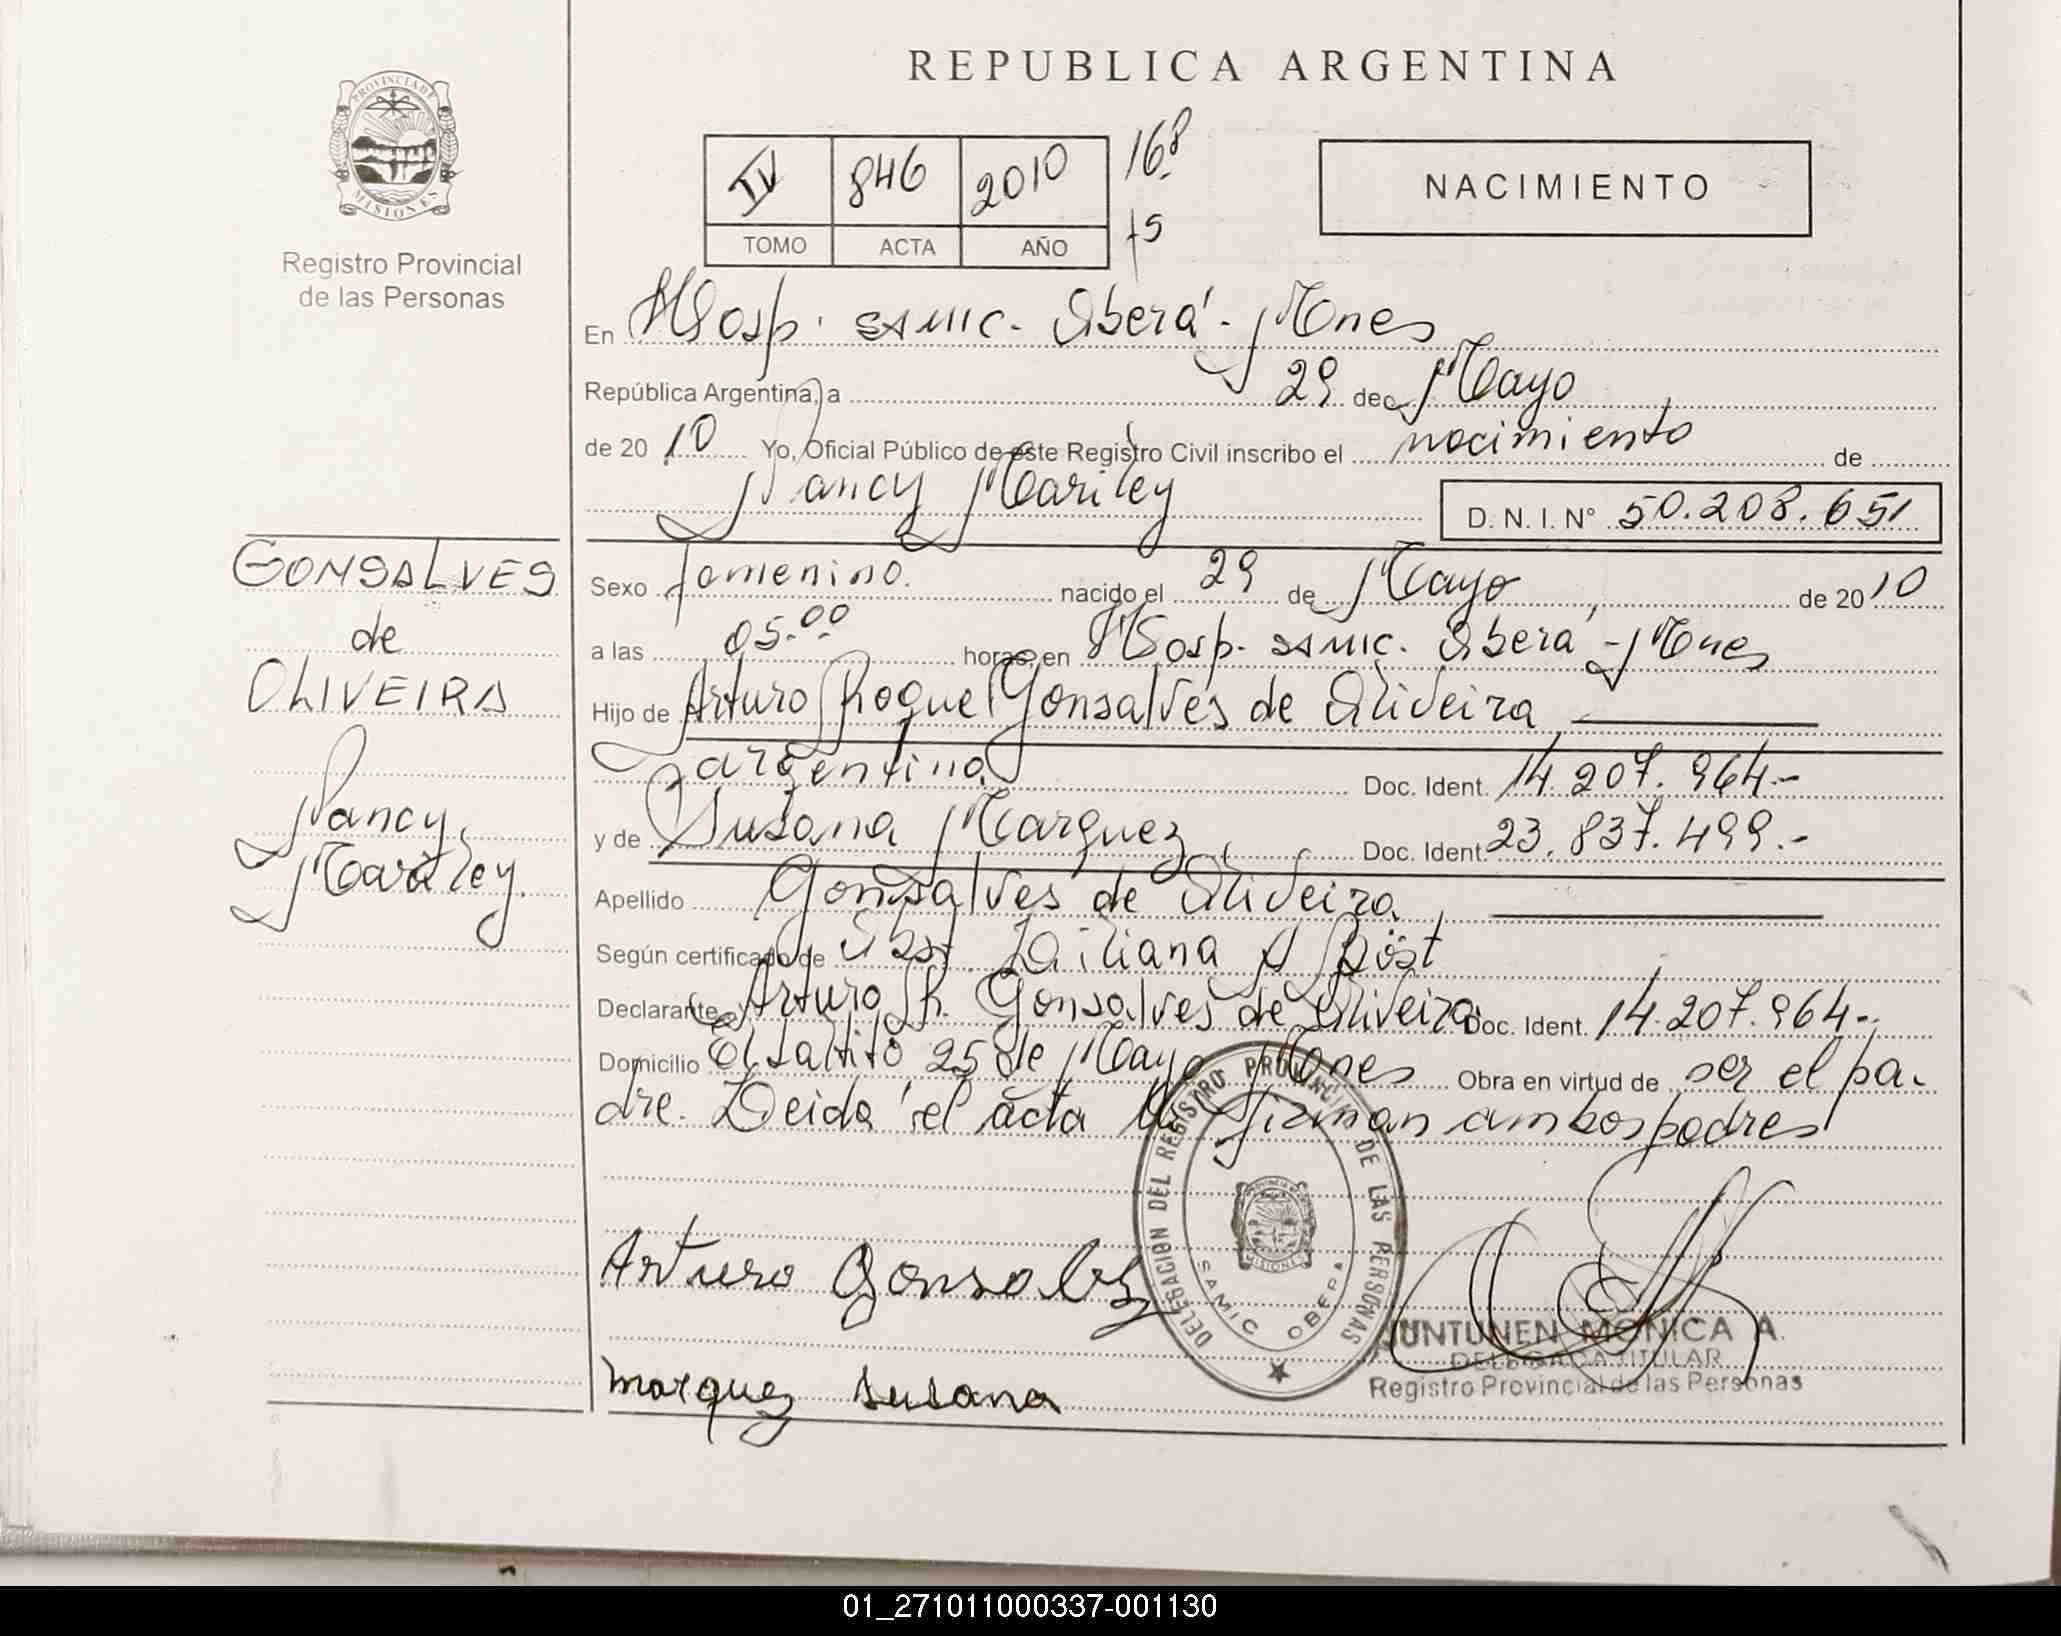 REPUBLICA ARGENTINA
PROVINCIA DE
MISIONES
Registro Provincial
de las Personas
IV 846 2010 168
TOMO ACTA AÑO f5
NACIMIENTO
En Hosp. SAMIC. Oberá - Mnes
República Argentina, a 29 de Mayo
de 2010 Yo, Oficial Público de este Registro Civil inscribo el nacimiento de
Nancy Mariley D. N. I. N° 50.208.651
GONSALVES
de
OLIVEIRA
Nancy
Mariley.
Sexo femenino. nacido el 29 de Mayo de 2010
a las 05.00 horas, en Hosp. SAMIC. Oberá - Mnes
Hijo de Arturo Roque Gonsalves de Oliveira
argentino Doc. Ident. 14.207.964.-
y de Susana Marquez Doc. Ident. 23.837.499.-
Apellido Gonsalves de Oliveira
Según certificado de Obst. Liliana A Böst
Declarante Arturo R. Gonsalves de Oliveira Doc. Ident. 14.207.964.-
Domicilio El Saltito 25 de Mayo Mnes Obra en virtud de ser el pa-
dre. Leida el acta la firman ambos padres
DELEGACION DEL REGISTRO PROVINCIAL DE LAS PERSONAS
SAMIC OBERA
Arturo Gonsalves
JUNTUNEN MONICA A.
DELEGADA TITULAR
Registro Provincial de las Personas
Marquez Susana
01_271011000337-001130